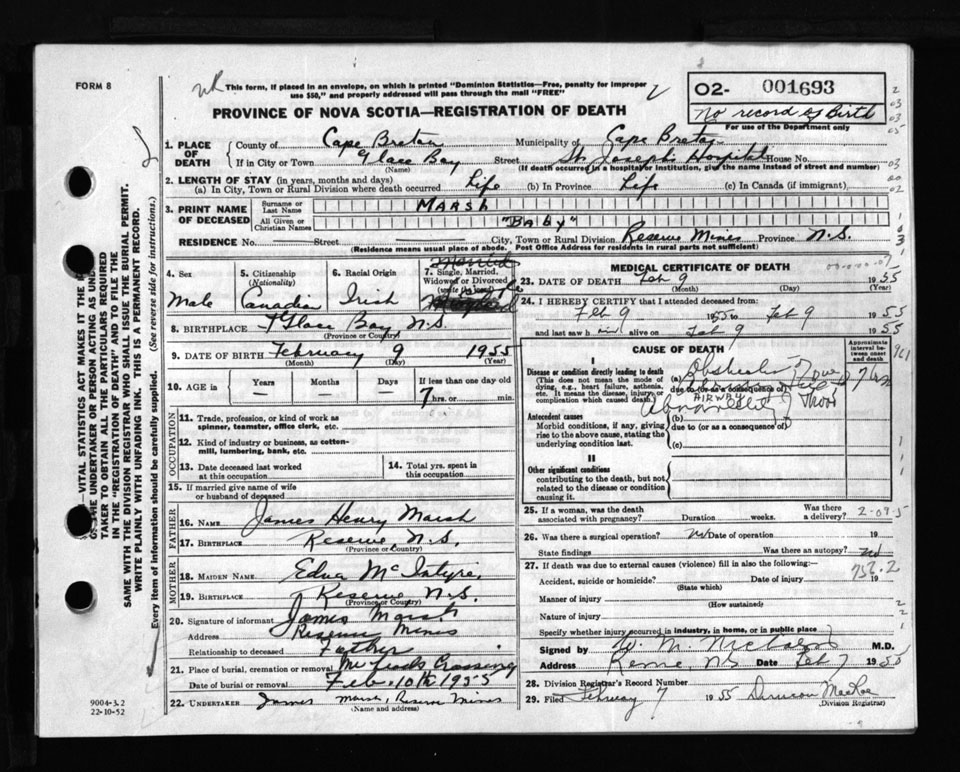 FORM 8
This form, if placed in an envelope, on which is printed "Dominion Statistics—Free, penalty for improper
use $50," and properly addressed will pass through the mail "FREE"
O2- 001693
No record of Birth
For use of the Department only
PROVINCE OF NOVA SCOTIA—REGISTRATION OF DEATH
1. PLACE OF DEATH
County of Cape Breton Municipality of Cape Breton
If in City or Town Glace Bay Street St. Joseph's Hospital House No.
(Name) (If death occurred in a hospital or institution, give the name instead of street and number)
2. LENGTH OF STAY (in years, months and days)
(a) In City, Town or Rural Division where death occurred Life (b) In Province Life (c) In Canada (if immigrant)
3. PRINT NAME OF DECEASED
Surname or Last Name MARSH
All Given or Christian Names "BABY"
RESIDENCE No. Street City, Town or Rural Division Reserve Mines Province N.S.
(Residence means usual place of abode. Post Office Address for residents in rural parts not sufficient)
4. Sex Male
5. Citizenship (Nationality)
6. Racial Origin Irish
7. Single, Married, Widowed or Divorced
8. BIRTHPLACE Glace Bay, N.S.
(Province or Country)
9. DATE OF BIRTH February 9 1955
(Month) (Day) (Year)
10. AGE in Years Months Days If less than one day old
7 hrs. or min.
OCCUPATION
11. Trade, profession, or kind of work as spinner, teamster, office clerk, etc.
12. Kind of industry or business, as cotton-mill, lumbering, bank, etc.
13. Date deceased last worked at this occupation
14. Total yrs. spent in this occupation
15. If married give name of wife or husband of deceased
FATHER
16. NAME James Henry Marsh
17. BIRTHPLACE Reserve, N.S.
(Province or Country)
MOTHER
18. MAIDEN NAME Edna McIntyre
19. BIRTHPLACE Reserve N.S.
(Province or Country)
20. Signature of informant James Marsh
Address Reserve Mines
Relationship to deceased Father
21. Place of burial, cremation or removal Crossing
Date of burial or removal Feb. 10th 1955
22. UNDERTAKER James Marsh, Reserve Mines
(Name and address)
MEDICAL CERTIFICATE OF DEATH
23. DATE OF DEATH Feb 9 1955
(Month) (Day) (Year)
24. I HEREBY CERTIFY that I attended deceased from:
Feb 9 1955 to Feb 9 1955
and last saw him alive on Feb 9 1955
CAUSE OF DEATH
Approximate interval between onset and death
I
Disease or condition directly leading to death
(This does not mean the mode of dying, e.g., heart failure, asthenia, etc. It means the disease, injury, or complication which caused death.)
(a)
due to (or as a consequence of)
AIRWAY
7 hrs
961
Antecedent causes
Morbid conditions, if any, giving rise to the above cause, stating the underlying condition last.
(b)
due to (or as a consequence of)
(c)
II
Other significant conditions
contributing to the death, but not related to the disease or condition causing it.
25. If a woman, was the death associated with pregnancy? Duration weeks. Was there a delivery?
2-09-5
26. Was there a surgical operation? No Date of operation 19
State findings Was there an autopsy? No
27. If death was due to external causes (violence) fill in also the following:—
756.2
Accident, suicide or homicide? Date of injury 19
(State which)
Manner of injury
(How sustained)
Nature of injury
Specify whether injury occurred in industry, in home, or in public place
Signed by M.D.
Address Reserve, NS Date Feb 7 1955
28. Division Registrar's Record Number
29. Filed February 7 1955 Duncan MacRae
(Division Registrar)
9004-3.2
22-10-52
—VITAL STATISTICS ACT MAKES IT THE
THE UNDERTAKER OR PERSON ACTING AS UNDER-
TAKER TO OBTAIN ALL THE PARTICULARS REQUIRED
IN THE "REGISTRATION OF DEATH" AND TO FILE THE
SAME WITH THE DIVISION REGISTRAR WHO SHALL ISSUE THE BURIAL PERMIT.
WRITE PLAINLY WITH UNFADING INK. THIS IS A PERMANENT RECORD.
Every item of information should be carefully supplied. (See reverse side for instructions.)